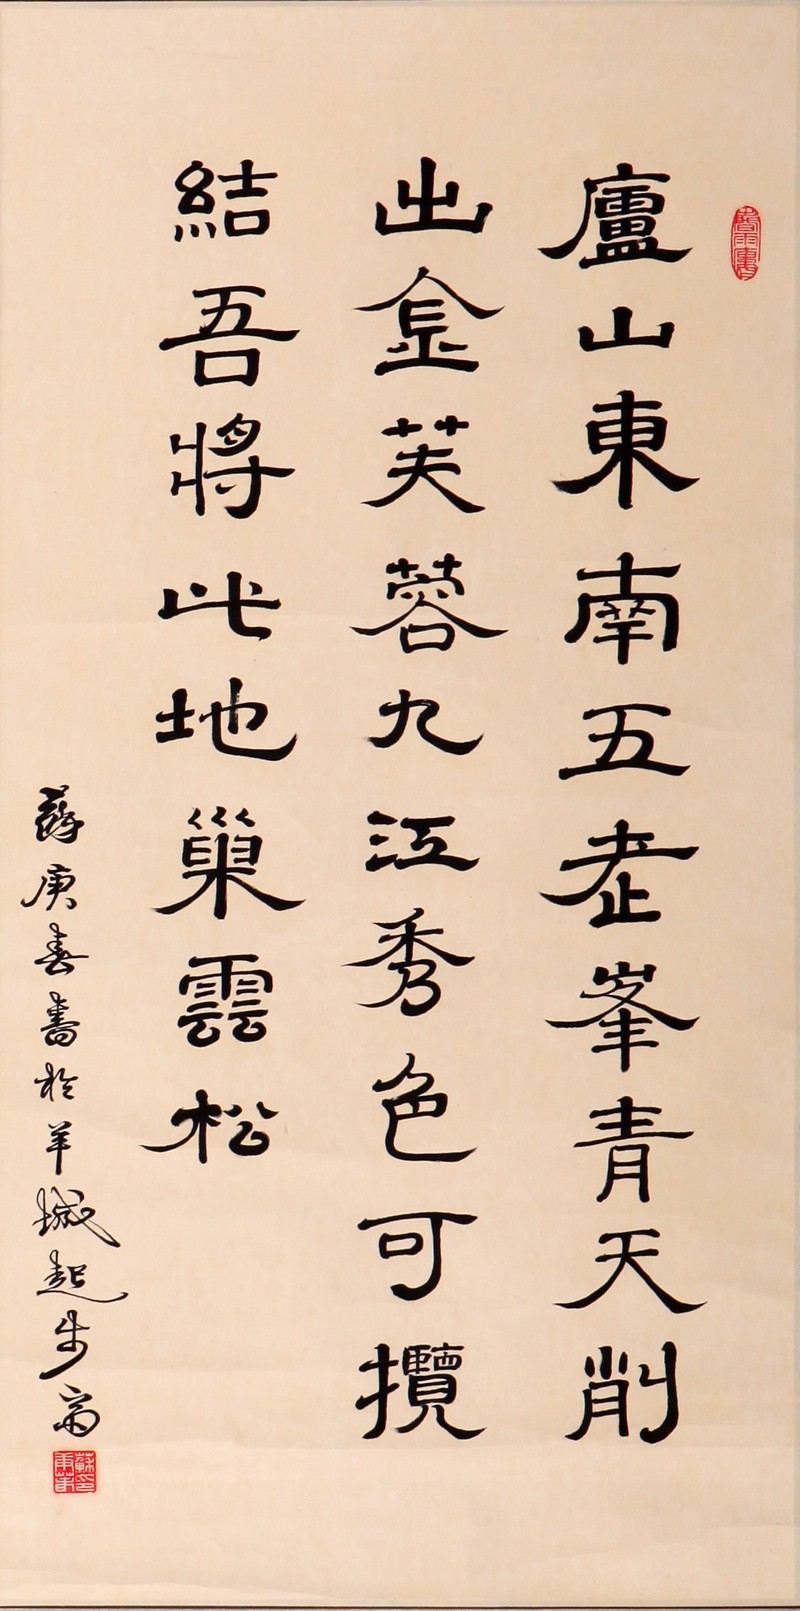 廬山東南五老峯青天削
出金芙蓉九江秀色可攬
結吾將此地巢雲松
蘇庚春書於羊城起步齋